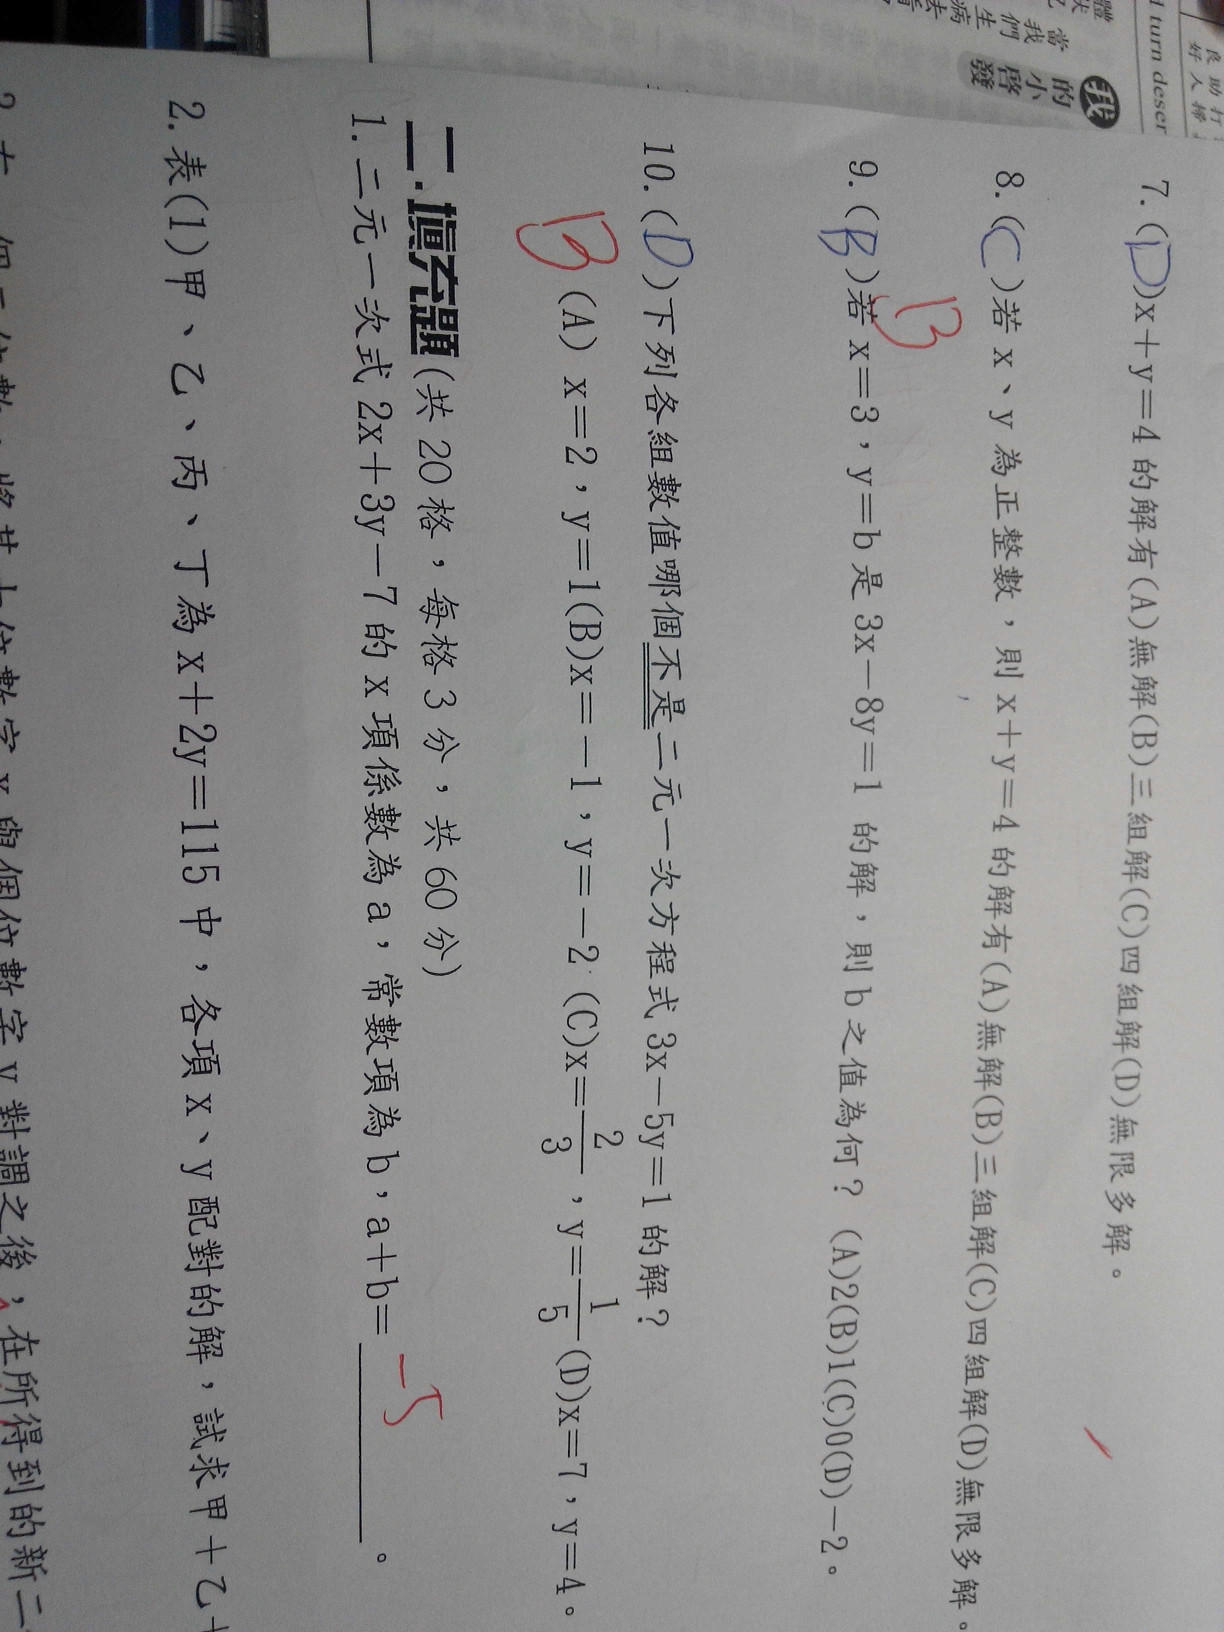 打
助
良
掃
人
好
turn deser
我
的小啓發
當我們
7.(D)x+y=4 的解有(A)無解(B)三組解(C)四組解(D)無限多解。
8.(C)若 x、y 為正整數，則 x+y=4 的解有(A)無解(B)三組解(C)四組解(D)無限多解。
B
9.(B)若 x=3，y=b 是 3x-8y=1 的解，則 b 之值為何？ (A)2(B)1(C)0(D)-2。
10.(D)下列各組數值哪個不是二元一次方程式 3x-5y=1 的解？
B (A) x=2，y=1(B)x=-1，y=-2 (C)x=2/3，y=1/5(D)x=7，y=4。
二.填充題(共 20 格，每格 3 分，共 60 分)
1.二元一次式 2x+3y-7 的 x 項係數為 a，常數項為 b，a+b= -5 。
2.表(1)甲、乙、丙、丁為 x+2y=115 中，各項 x、y 配對的解，試求甲+乙+
數字 x 與個位數字 y 對調之後，在所得到的新二